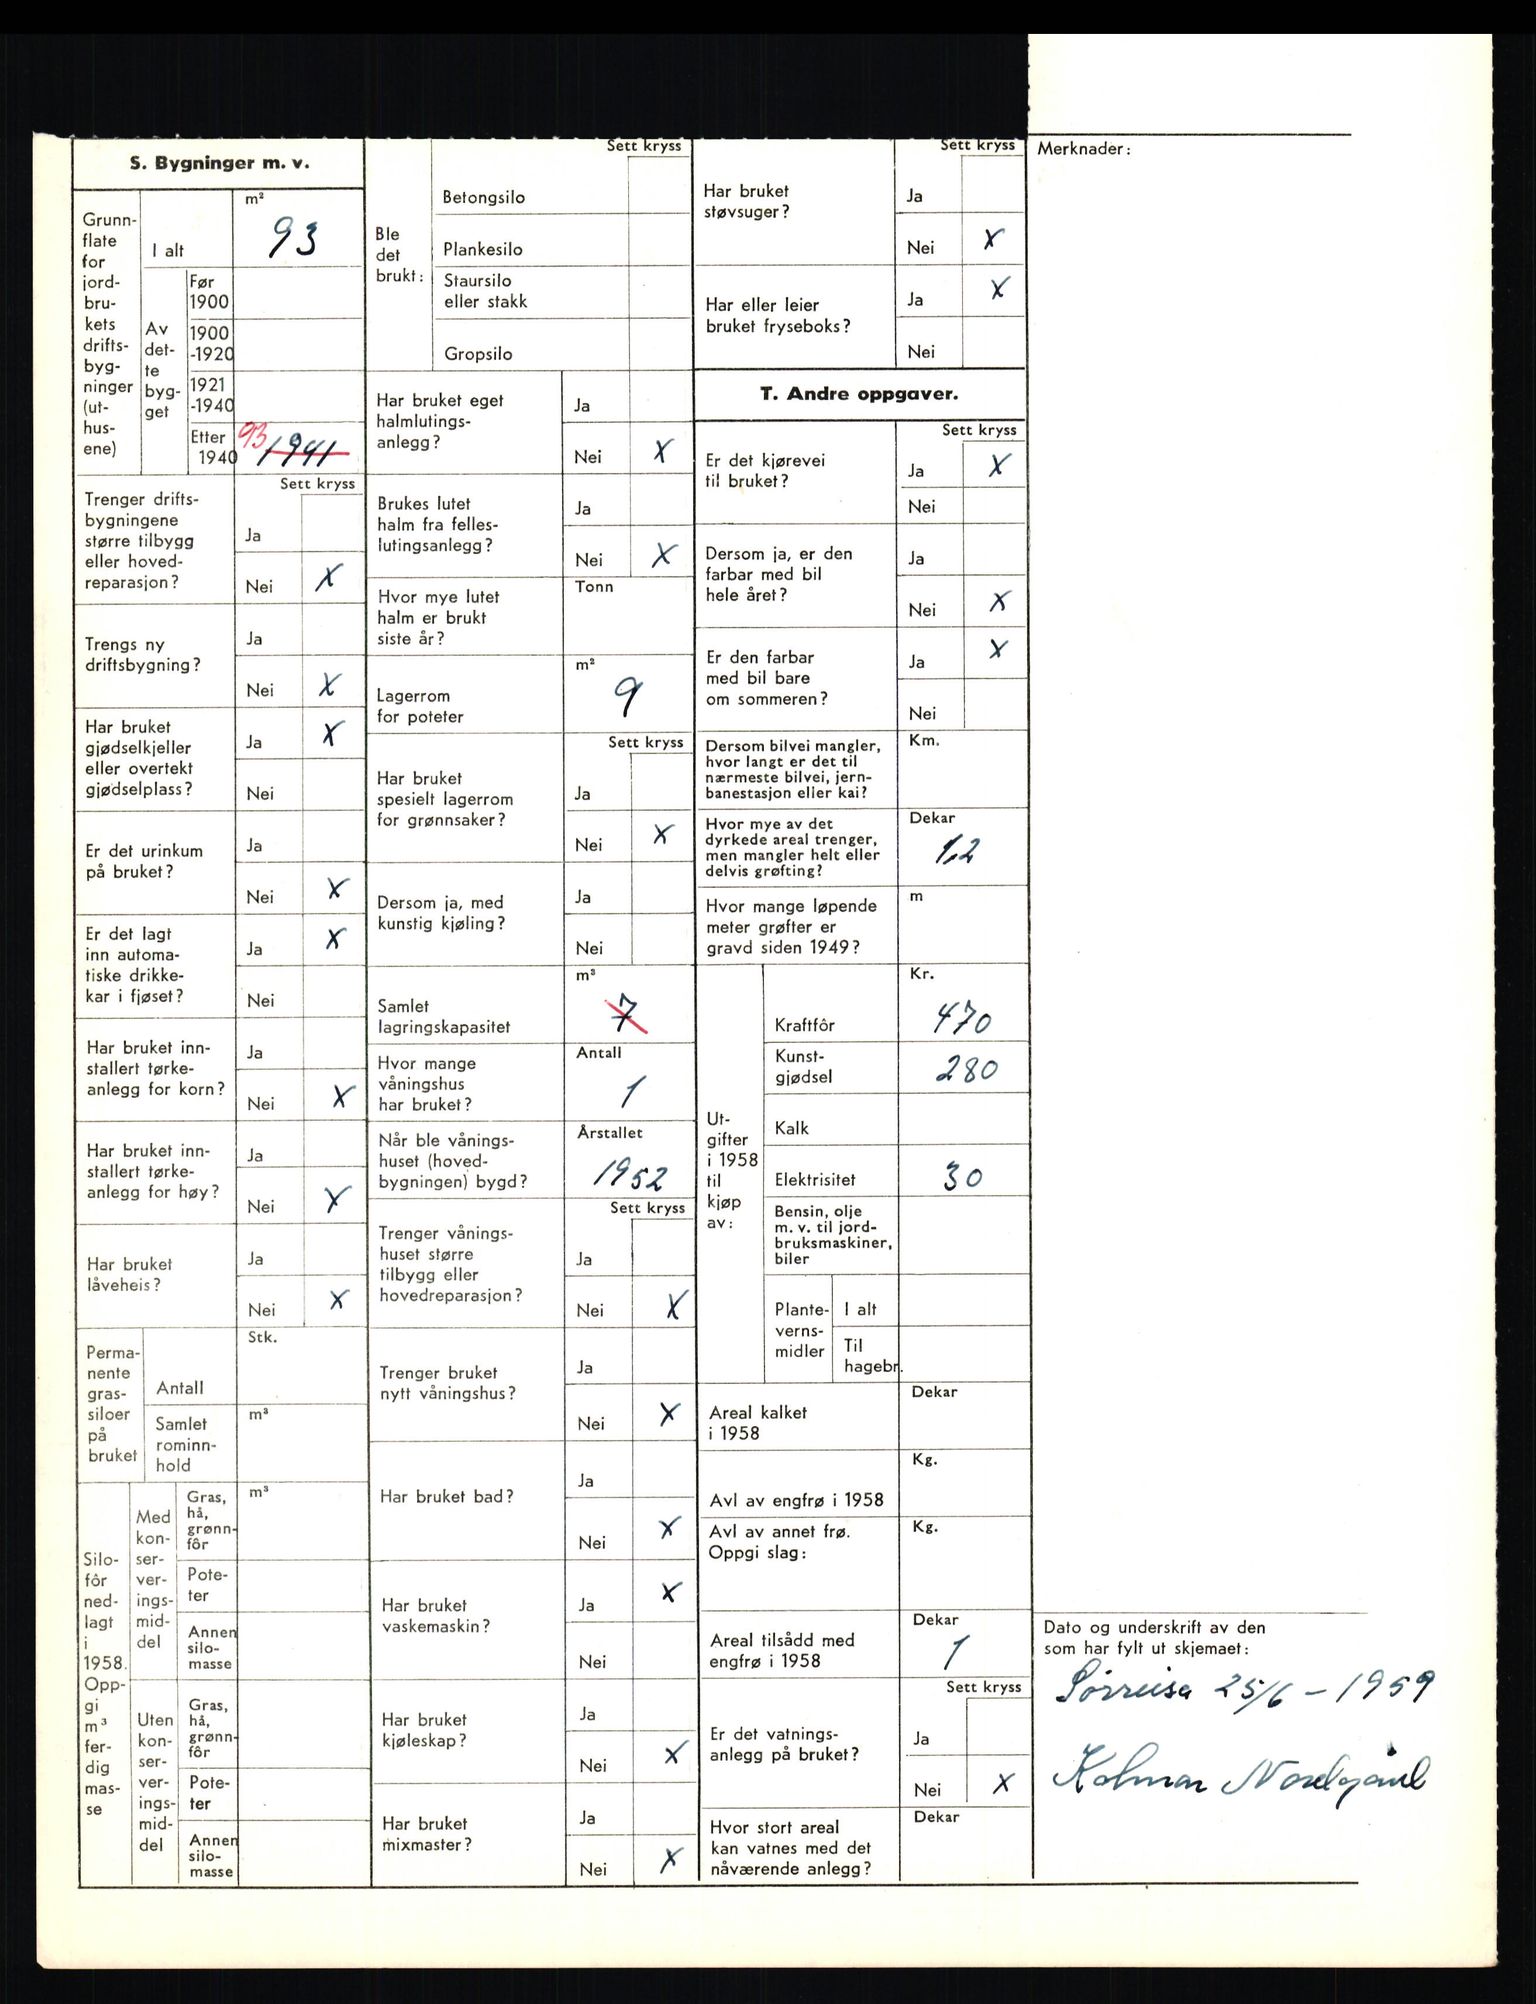 S. Bygninger m. v.
Grunn-
flate
for
jord-
bru-
kets
drifts-
byg-
ninger
(ut-
hus-
ene)
I alt
m²
93
Av
det-
te
byg-
get
Før
1900
1900
-1920
1921
-1940
Etter
1940
93
1941
Sett kryss
Trenger drifts-
bygningene
større tilbygg
eller hoved-
reparasjon?
Ja
Nei X
Trengs ny
driftsbygning?
Ja
Nei X
Har bruket
gjødselkjeller
eller overtekt
gjødselplass?
Ja X
Nei
Er det urinkum
på bruket?
Ja
Nei X
Er det lagt
inn automa-
tiske drikke-
kar i fjøset?
Ja X
Nei
Har bruket inn-
stallert tørke-
anlegg for korn?
Ja
Nei X
Har bruket inn-
stallert tørke-
anlegg for høy?
Ja
Nei X
Har bruket
låveheis?
Ja
Nei X
Perma-
nente
gras-
siloer
på
bruket
Antall
Stk.
Samlet
rominn-
hold
m³
Silo-
fôr
ned-
lagt
i
1958.
Opp-
gi
m³
fer-
dig
mas-
se
Med
kon-
ser-
ver-
ings-
mid-
del
Gras,
hå,
grønn-
fôr
m³
Pote-
ter
Annen
silo-
masse
Uten
kon-
ser-
ver-
ings-
mid-
del
Gras,
hå,
grønn-
fôr
Pote-
ter
Annen
silo-
masse
Sett kryss
Ble
det
brukt:
Betongsilo
Plankesilo
Staursilo
eller stakk
Gropsilo
Har bruket eget
halmlutings-
anlegg?
Ja
Nei X
Brukes lutet
halm fra felles-
lutingsanlegg?
Ja
Nei X
Hvor mye lutet
halm er brukt
siste år?
Tonn
Lagerrom
for poteter
m²
9
Sett kryss
Har bruket
spesielt lagerrom
for grønnsaker?
Ja
Nei X
Dersom ja, med
kunstig kjøling?
Ja
Nei
Samlet
lagringskapasitet
m³
7
Hvor mange
våningshus
har bruket?
Antall
1
Når ble vånings-
huset (hoved-
bygningen) bygd?
Årstallet
1952
Sett kryss
Trenger vånings-
huset større
tilbygg eller
hovedreparasjon?
Ja
Nei X
Trenger bruket
nytt våningshus?
Ja
Nei X
Har bruket bad?
Ja
Nei X
Har bruket
vaskemaskin?
Ja X
Nei
Har bruket
kjøleskap?
Ja
Nei X
Har bruket
mixmaster?
Ja
Nei X
Sett kryss
Har bruket
støvsuger?
Ja
Nei X
Har eller leier
bruket fryseboks?
Ja X
Nei
T. Andre oppgaver.
Sett kryss
Er det kjørevei
til bruket?
Ja X
Nei
Dersom ja, er den
farbar med bil
hele året?
Ja
Nei X
Er den farbar
med bil bare
om sommeren?
Ja X
Nei
Dersom bilvei mangler,
hvor langt er det til
nærmeste bilvei, jern-
banestasjon eller kai?
Km.
Hvor mye av det
dyrkede areal trenger,
men mangler helt eller
delvis grøfting?
Dekar
1,2
Hvor mange løpende
meter grøfter er
gravd siden 1949?
m
Ut-
gifter
i 1958
til
kjøp
av:
Kr.
Kraftfôr
470
Kunst-
gjødsel
280
Kalk
Elektrisitet
30
Bensin, olje
m. v. til jord-
bruksmaskiner,
biler
Plante-
verns-
midler
I alt
Til
hagebr.
Areal kalket
i 1958
Dekar
Avl av engfrø i 1958
Kg.
Avl av annet frø.
Oppgi slag:
Kg.
Areal tilsådd med
engfrø i 1958
Dekar
1
Sett kryss
Er det vatnings-
anlegg på bruket?
Ja
Nei X
Hvor stort areal
kan vatnes med det
nåværende anlegg?
Dekar
Merknader:
Dato og underskrift av den
som har fylt ut skjemaet:
Sørreisa 25/6 – 1959
Kolmar Nordgård